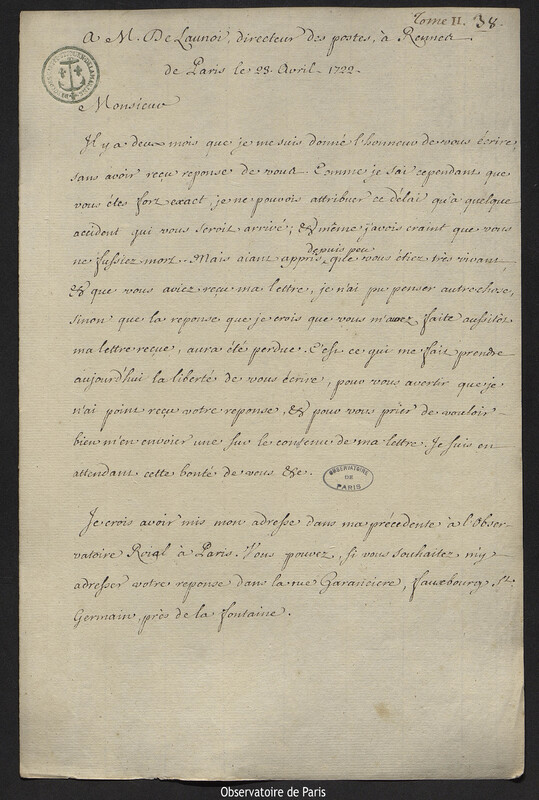 Tome II. 38.
A M. De Launoi, directeur des postes, à
de Paris le 28. Avril. 1722.
Monsieur
Il y a deux mois que je me suis donné l'honneur de vous écrire,
sans avoir reçu reponse de vous. Comme je sai cependant que
vous étes fort exact, je ne pouvois attribuer ce délai qu'à quelque
accident qui vous seroit arrivé; & même j'avois craint que vous
ne fussiez mort. Mais aiant appris depuis peu que vous étiez très vivant,
& que vous aviez reçu ma lettre, je n'ai pu penser autre chose,
sinon que la reponse que je crois que vous m'avez faite aussitôt
ma lettre reçue, aura été perdue. C'est ce qui me fait prendre
aujourd'hui la liberté de vous écrire, pour vous avertir que je
n'ai point reçu votre reponse, & pour vous prier de vouloir
bien m'en envoier une sur le contenu de ma lettre. Je suis en
attendant cette bonté de vous &c.
OBSERVATOIRE
DE
PARIS
Je crois avoir mis mon adresse dans ma précedente à l'Obser-
vatoire Roial à Paris. Vous pouvez, si vous souhaitez m'y
adresser votre reponse dans la rue Garanciere, fauxbourg St.
Germain, près de la fontaine.
Observatoire de Paris